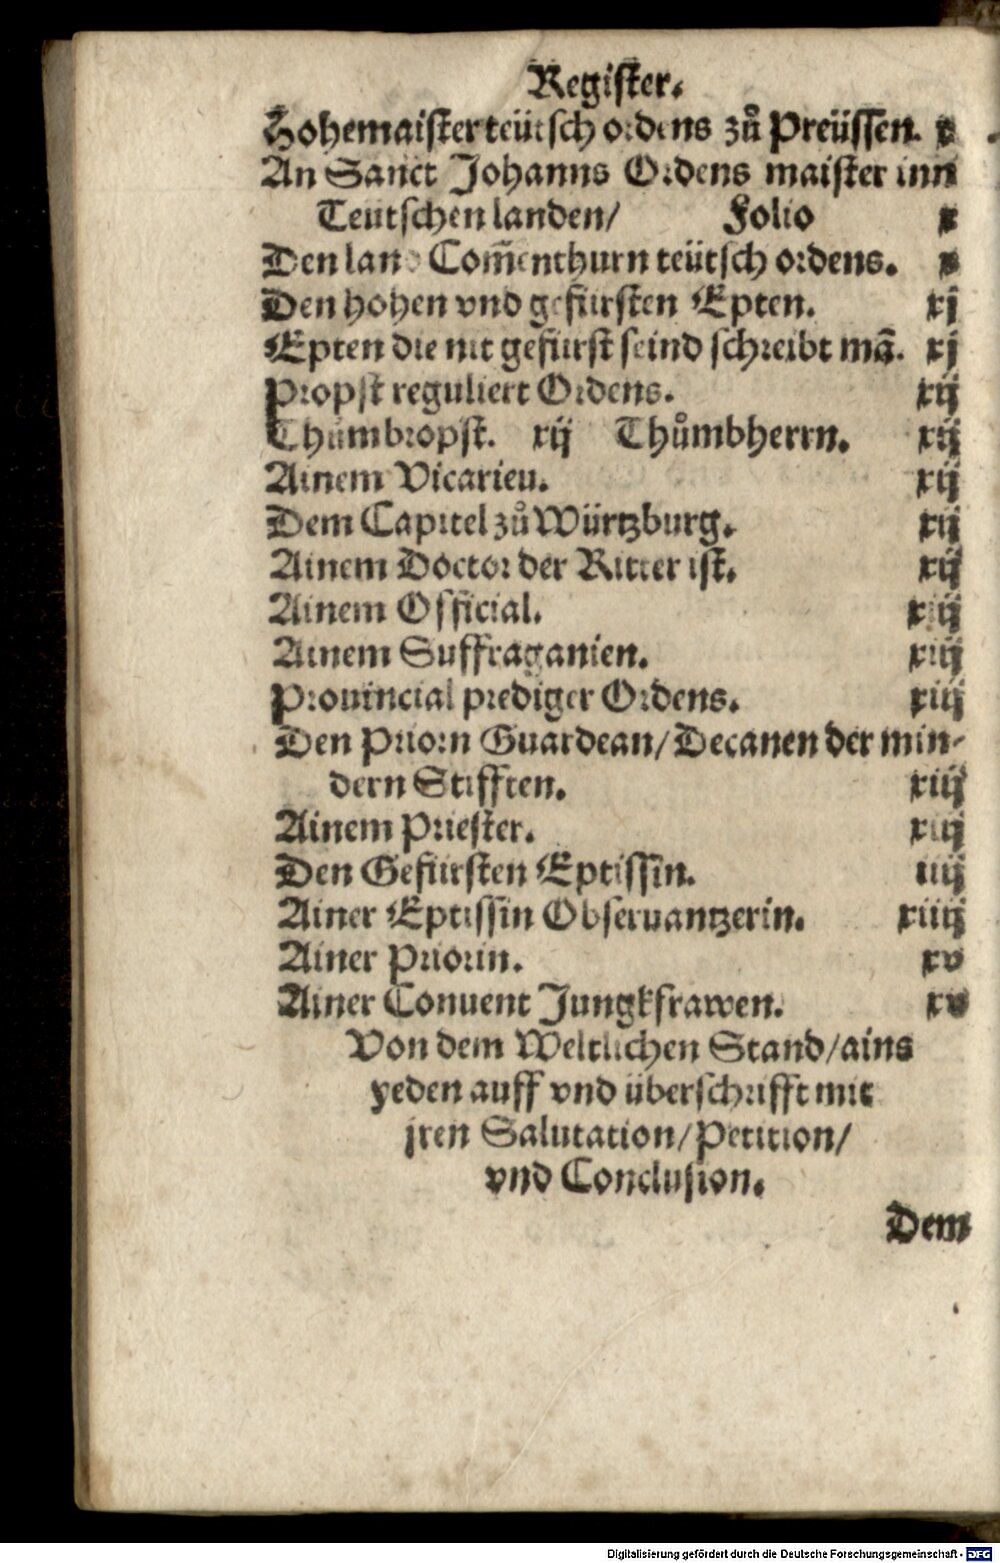 Register.
Hohemaister teütsch ordens zů Preüssen. x
An Sanct Johanns Ordens maister inn
Teutschen landen/ Folio x
Den land Com̃enthurn teütsch ordens. x
Den hohen vnd gefürsten Epten. xj
Epten die nit gefürst seind schreibt mã. xj
Propst reguliert Ordens. xij
Thůmbropst. xij Thůmbherrn. xij
Ainem Vicarieu. xij
Dem Capitel zů Würtzburg. xij
Ainem Doctor der Ritter ist. xij
Ainem Official. xiij
Ainem Suffraganien. xiij
Prouincial prediger Ordens. xiij
Den Priorn Guardean/ Decanen der min-
dern Stifften. xiij
Ainem Priester. xiij
Den Gefürsten Eptissin. iiij
Ainer Eptissin Obseruantzerin. xiiij
Ainer Priorin. xv
Ainer Conuent Jungkfrawen. xv
Von dem Weltlichen Stand/ains
yeden auff vnd überschrifft mit
jren Salutation/Petition/
vnd Conclusion.
Dem
Digitalisierung gefördert durch die Deutsche Forschungsgemeinschaft - DFG